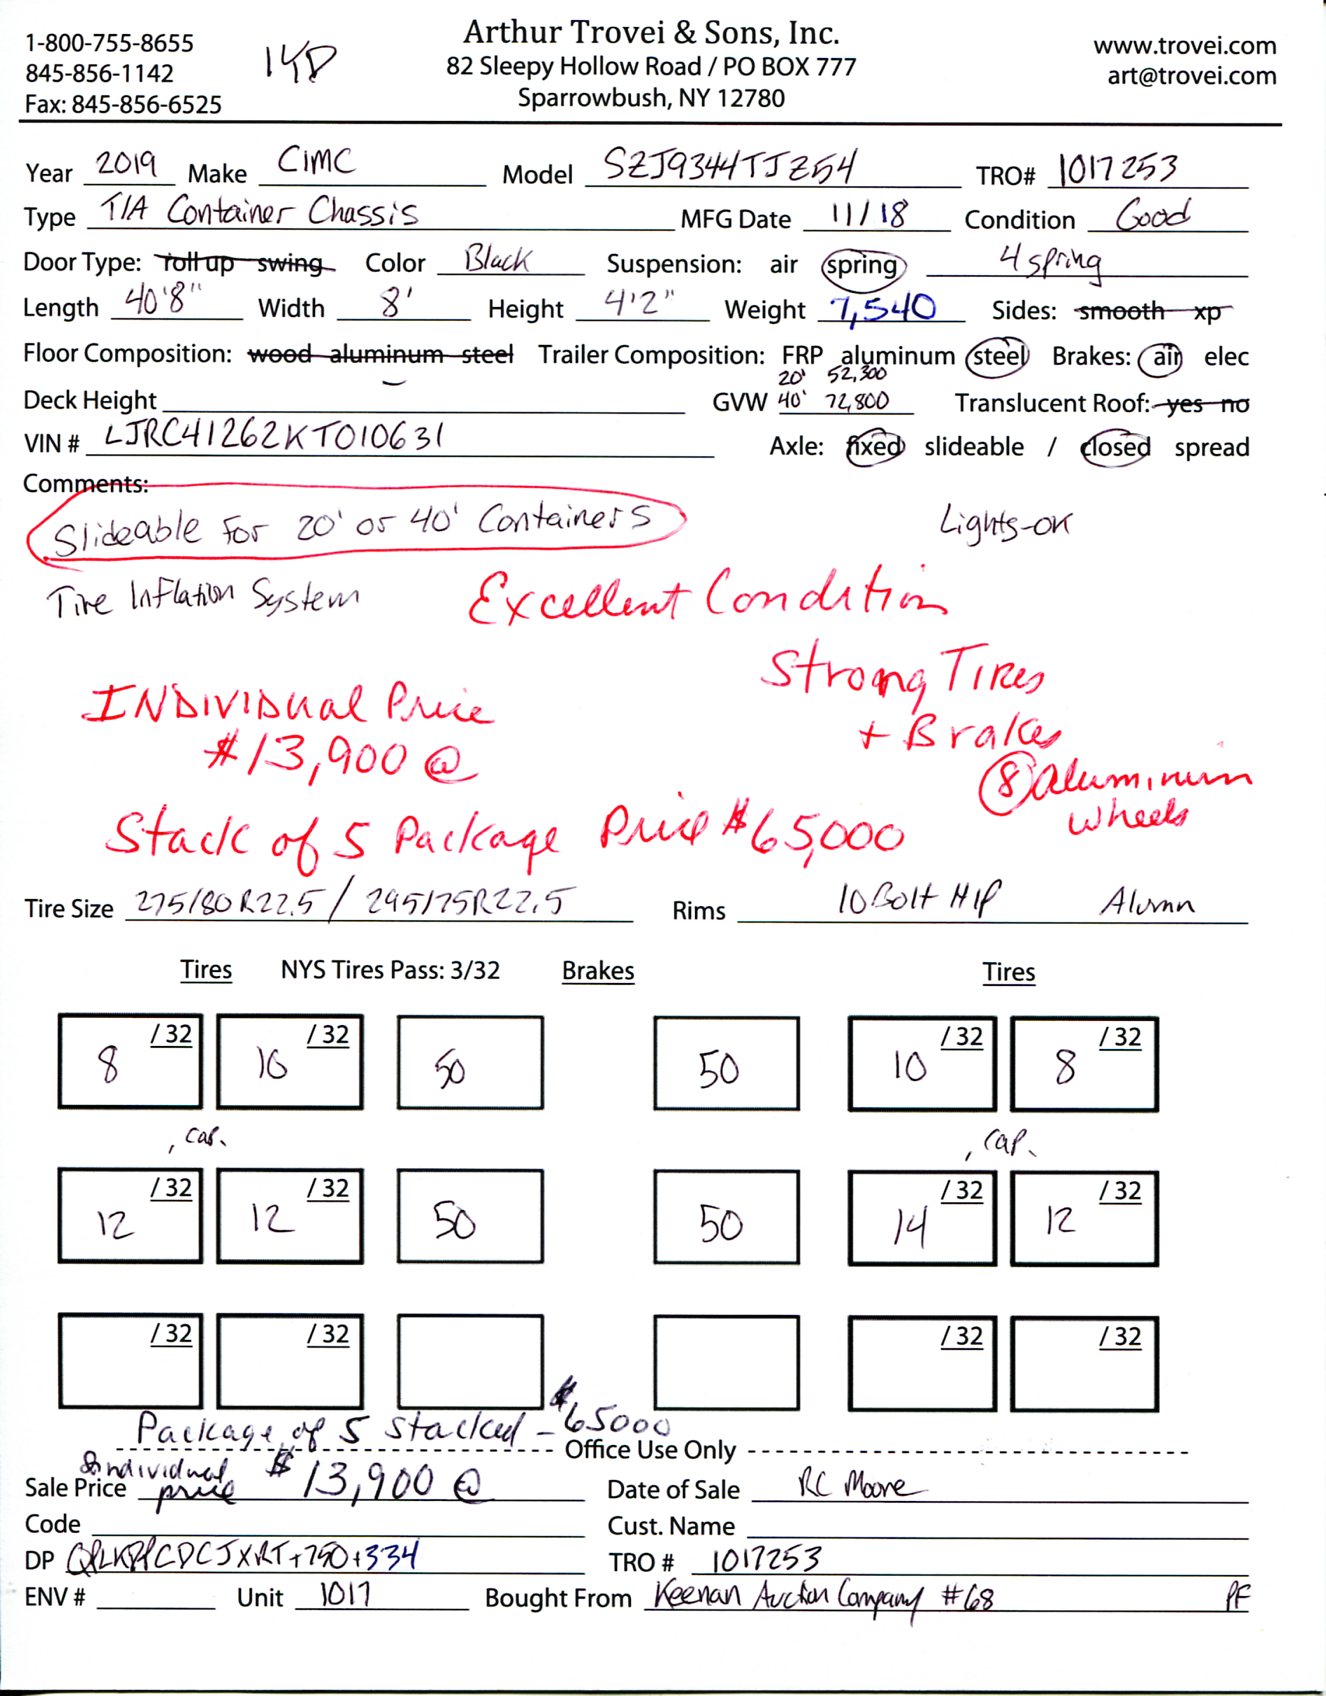 1-800-755-8655
845-856-1142
Fax: 845-856-6525
Arthur Trovei & Sons, Inc.
82 Sleepy Hollow Road / PO BOX 777
Sparrowbush, NY 12780
www.trovei.com
art@trovei.com
Year 2019 Make CIMC Model SZJ9344TJZ54 TRO# 1017253
Type T/A Container Chassis MFG Date 11/18 Condition Good
Door Type: roll up swing Color Black Suspension: air spring 4 spring
Length 40'8" Width 8' Height 4'2" Weight 7,540 Sides: smooth xp
Floor Composition: wood aluminum steel Trailer Composition: FRP aluminum steel Brakes: air elec
20' 52,300
Deck Height GVW 40' 72,800 Translucent Roof: yes no
VIN # LJRC41262KT010631 Axle: fixed slideable / closed spread
Comments:
Slideable For 20' or 40' Containers
Lights-OK
Tire Inflation System
Excellent Condition
Strong Tires
+ Brakes
8 aluminum
wheels
INDIVIDUAL Price
$13,900 @
Stack of 5 Package Price $65,000
Tire Size 275/80R22.5 / 295/75R22.5 Rims 10 Bolt H/P Alumn
Tires NYS Tires Pass: 3/32 Brakes Tires
8 /32 10 /32 50 50 10 /32 8 /32
, cap. , cap.
12 /32 12 /32 50 50 14 /32 12 /32
/32 /32 /32 /32
Package of 5 stacked - $65000
Office Use Only
Individual
Sale Price price $13,900 @ Date of Sale RC Moore
Code Cust. Name
DP +750+334 TRO # 1017253
ENV # Unit 1017 Bought From Keenan Auction Company #68 PF